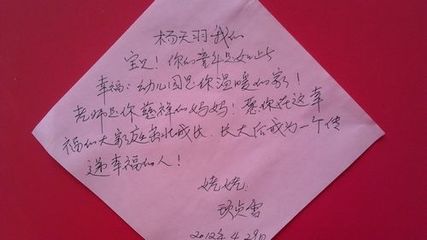 杨天羽我们
宝贝！你们童年是如此
幸福：幼儿园是你温暖的家！
老师是你慈祥的妈妈！愿你在这幸
福的大家庭茁壮成长，长大后成为一个传
递幸福的人！
姥姥：
贞雪
2012年4.29日